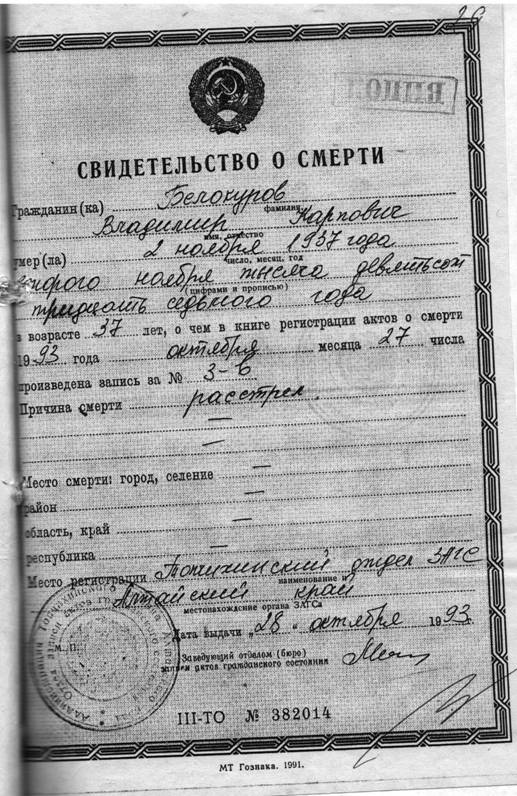 26
СВИДЕТЕЛЬСТВО О СМЕРТИ
Гражданин(ка) Белокуров
фамилия
Владимир Карпович
имя, отчество
умер(ла) 2 ноября 1937 года
число, месяц, год
второго ноября тысяча девятьсот
(цифрами и прописью)
тридцать седьмого года
в возрасте 37 лет, о чем в книге регистрации актов о смерти
1993 года октября месяца 27 числа
произведена запись за № 3-в
Причина смерти расстрел.
—
—
Место смерти: город, селение —
район —
область, край —
республика
Место регистрации Топчихинский отдел ЗАГС
наименование и
Алтайский край
местонахождение органа ЗАГСа
Дата выдачи „28“ октября 1993.
М. П.
Заведующий отделом (бюро)
записи актов гражданского состояния
III-ТО № 382014
МТ Гознака. 1991.